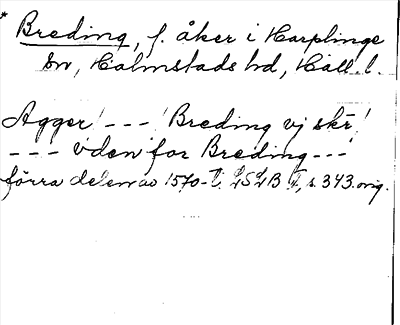 * Breding, f. åker i Harplinge
sn, Halmstads hd, Hall. l.
Agger! --- ! Breding vj skr!
--- vden for Breding ---
förra delen av 1570-t. LSLB I, s. 343. orig.